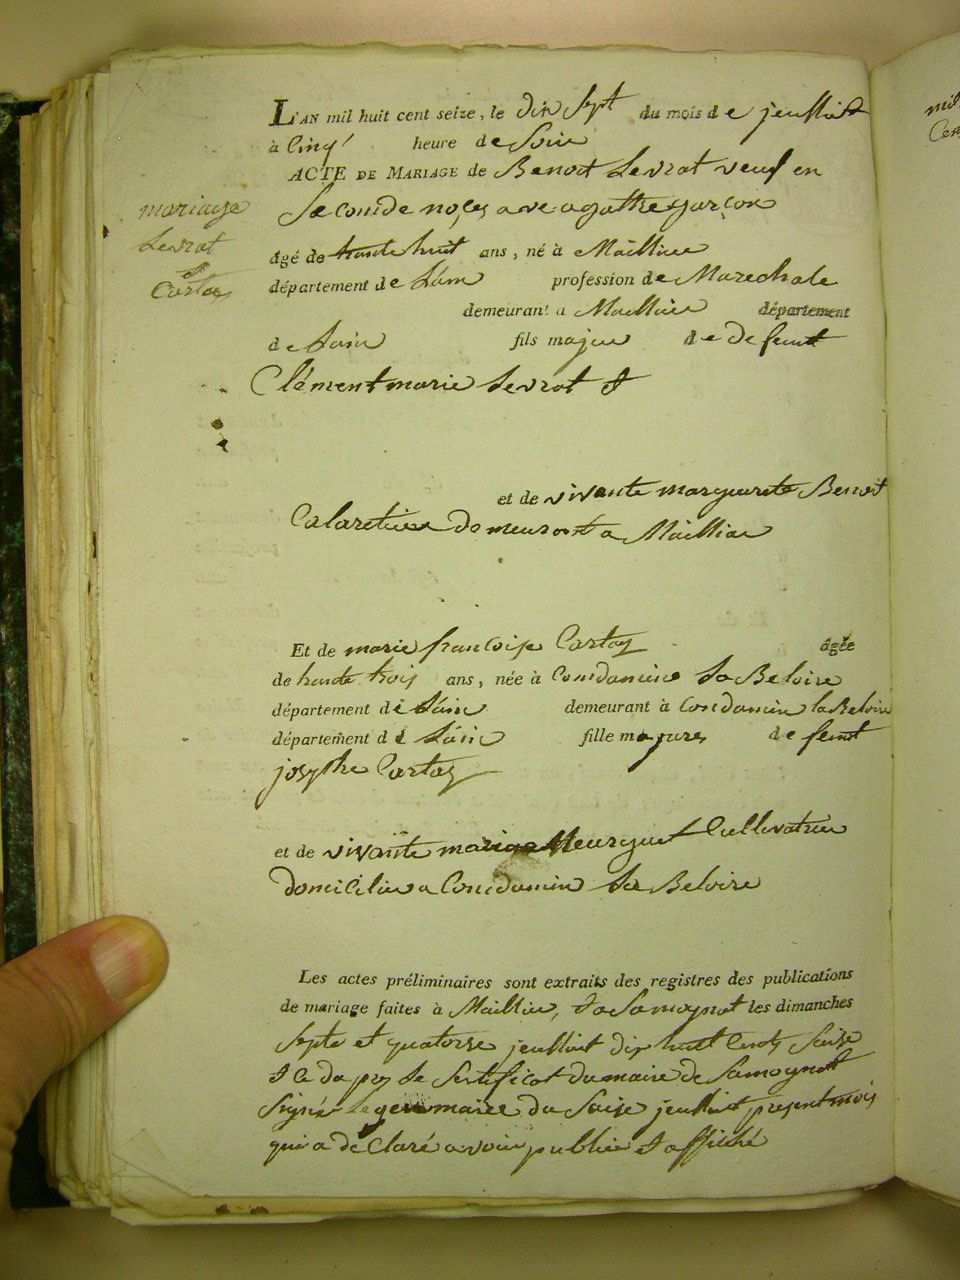 L'AN mil huit cent seize, le dix sept du mois de jeulliait
à Cinq heure de Soire
ACTE DE MARIAGE de Benoit Levrat veuf en
Seconde noces avec agathe garçon
mariage
Levrat
et
Cartaz
âgé de trante huit ans, né à Maillia
département de L'ain profession de Marechale
demeurant a Maillia département
de L'ain fils majeur de defeunt
Clément marie Levrat et
et de vivante marguerite Benoit
demeurant a Maillia
Et de marie francoise Cartaz âgée
de trante trois ans, née à Condamine La Beloire
département de L'ain demeurant à Condamin la Beloire
département de L'ain fille majeures defeunt
josephe Cartaz
et de vivante Cullivatrice
domicilie a Condamin La Beloire
Les actes préliminaires sont extraits des registres des publications
de mariage faites à Maillia, et a Samognat les dimanches
septe et quatorse jeulliait dix huit Cents Saise
Le Sertificat du maire de Samognat
Signé maire du Saise jeulliait present mois
qui a déClaré avoir publie et affiché
mil
Cen